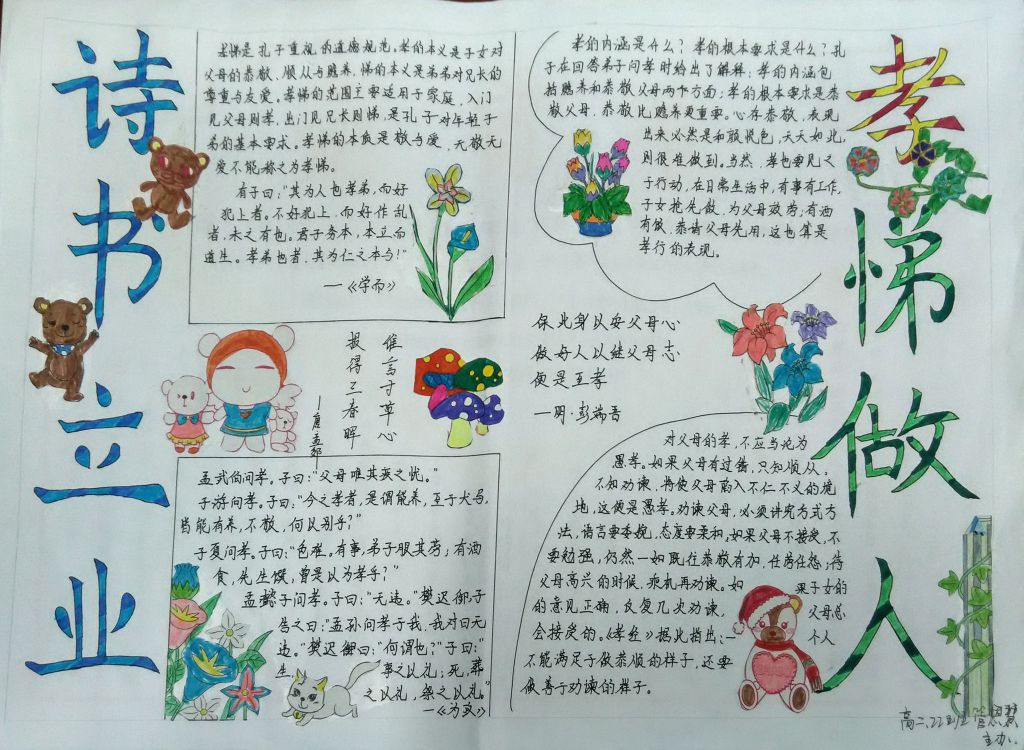 孝悌做人
诗书立业
孝悌是孔子重视的道德规范。孝的本义是子女对
父母的恭敬、顺从与赡养，悌的本义是弟弟对兄长的
尊重与友爱。孝悌的范围主要适用于家庭，入门
见父母则孝，出门见兄长则悌，是孔子对年轻子
弟的基本要求。孝悌的本质是敬与爱，无敬无
爱不能称之为孝悌。
有子曰：“其为人也孝弟，而好
犯上者。不好犯上，而好作乱
者，未之有也。君子务本，本立而
道生。孝弟也者，其为仁之本与！”
—《学而》
孝的内涵是什么？孝的根本要求是什么？孔
子在回答弟子问孝时给出了解释：孝的内涵包
括赡养和恭敬父母两个方面；孝的根本要求是恭
敬父母，恭敬比赡养更重要。心存恭敬，表现
出来必然是和颜悦色，天天如此，
则很难做到。当然，孝也要见之
于行动，在日常生活中，有事有工作，
子女抢先做，为父母效劳；有酒
有饭，恭请父母先用，这也算是
孝行的表现。
谁言寸草心
报得三春晖
—唐孟郊
保此身以安父母心
做好人以继父母志
便是至孝
—明·彭端吾
孟武伯问孝。子曰：“父母唯其疾之忧。”
子游问孝。子曰：“今之孝者，是谓能养，至于犬马，
皆能有养，不敬，何以别乎？”
子夏问孝。子曰：“色难。有事，弟子服其劳；有酒
食，先生馔，曾是以为孝乎？”
孟懿子问孝。子曰：“无违。”樊迟御，子
告之曰：“孟孙问孝于我，我对曰无
违。”樊迟曰：“何谓也？”子曰：“
生，事之以礼；死，葬
之以礼，祭之以礼。”
—《为政》
对父母的孝，不应当沦为
愚孝。如果父母有过错，只知顺从，
不知劝谏，将使父母陷入不仁不义的境
地，这便是愚孝。劝谏父母，必须讲究方式方
法，语言要委婉，态度要柔和，如果父母不接受，不
要勉强，仍然一如既往恭敬有加，任劳任怨；待
父母高兴的时候，乘机再劝谏。如果子女的
的意见正确，反复几次劝谏，父母总
会接受的。《孝经》据此指出：一个人
不能满足于做恭顺的样子，还要
做善于劝谏的样子。
高二.22班
主办.